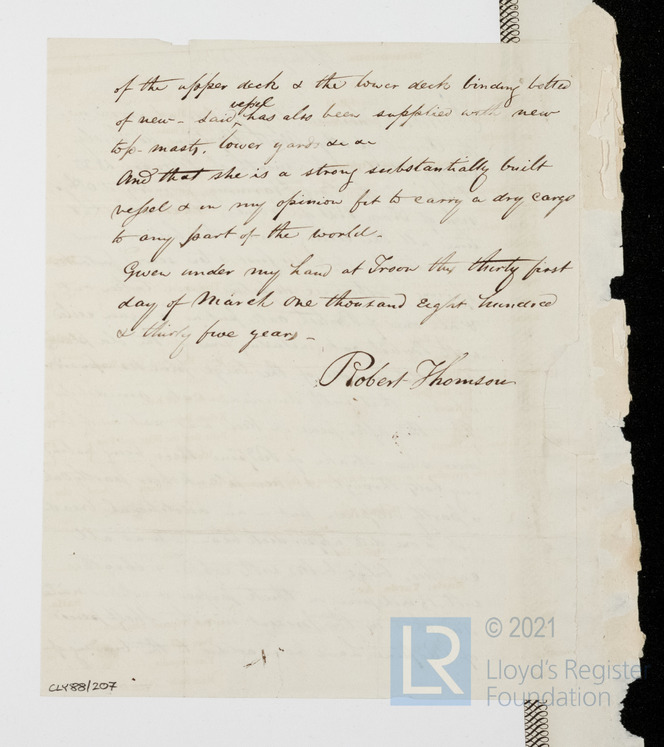 of the upper deck & the lower deck binding betted
of new - Said vessel has also been supplied with new
top-masts. lower yards &c &c
And that she is a strong substantially built
vessel & in my opinion fit to carry a dry cargo
to any part of the world -
Given under my hand at Troon this thirty first
day of March one thousand Eight hundred
& thirty five years -
Robert Thomson
CLY88/207
LR
© 2021
Lloyd's Register
Foundation